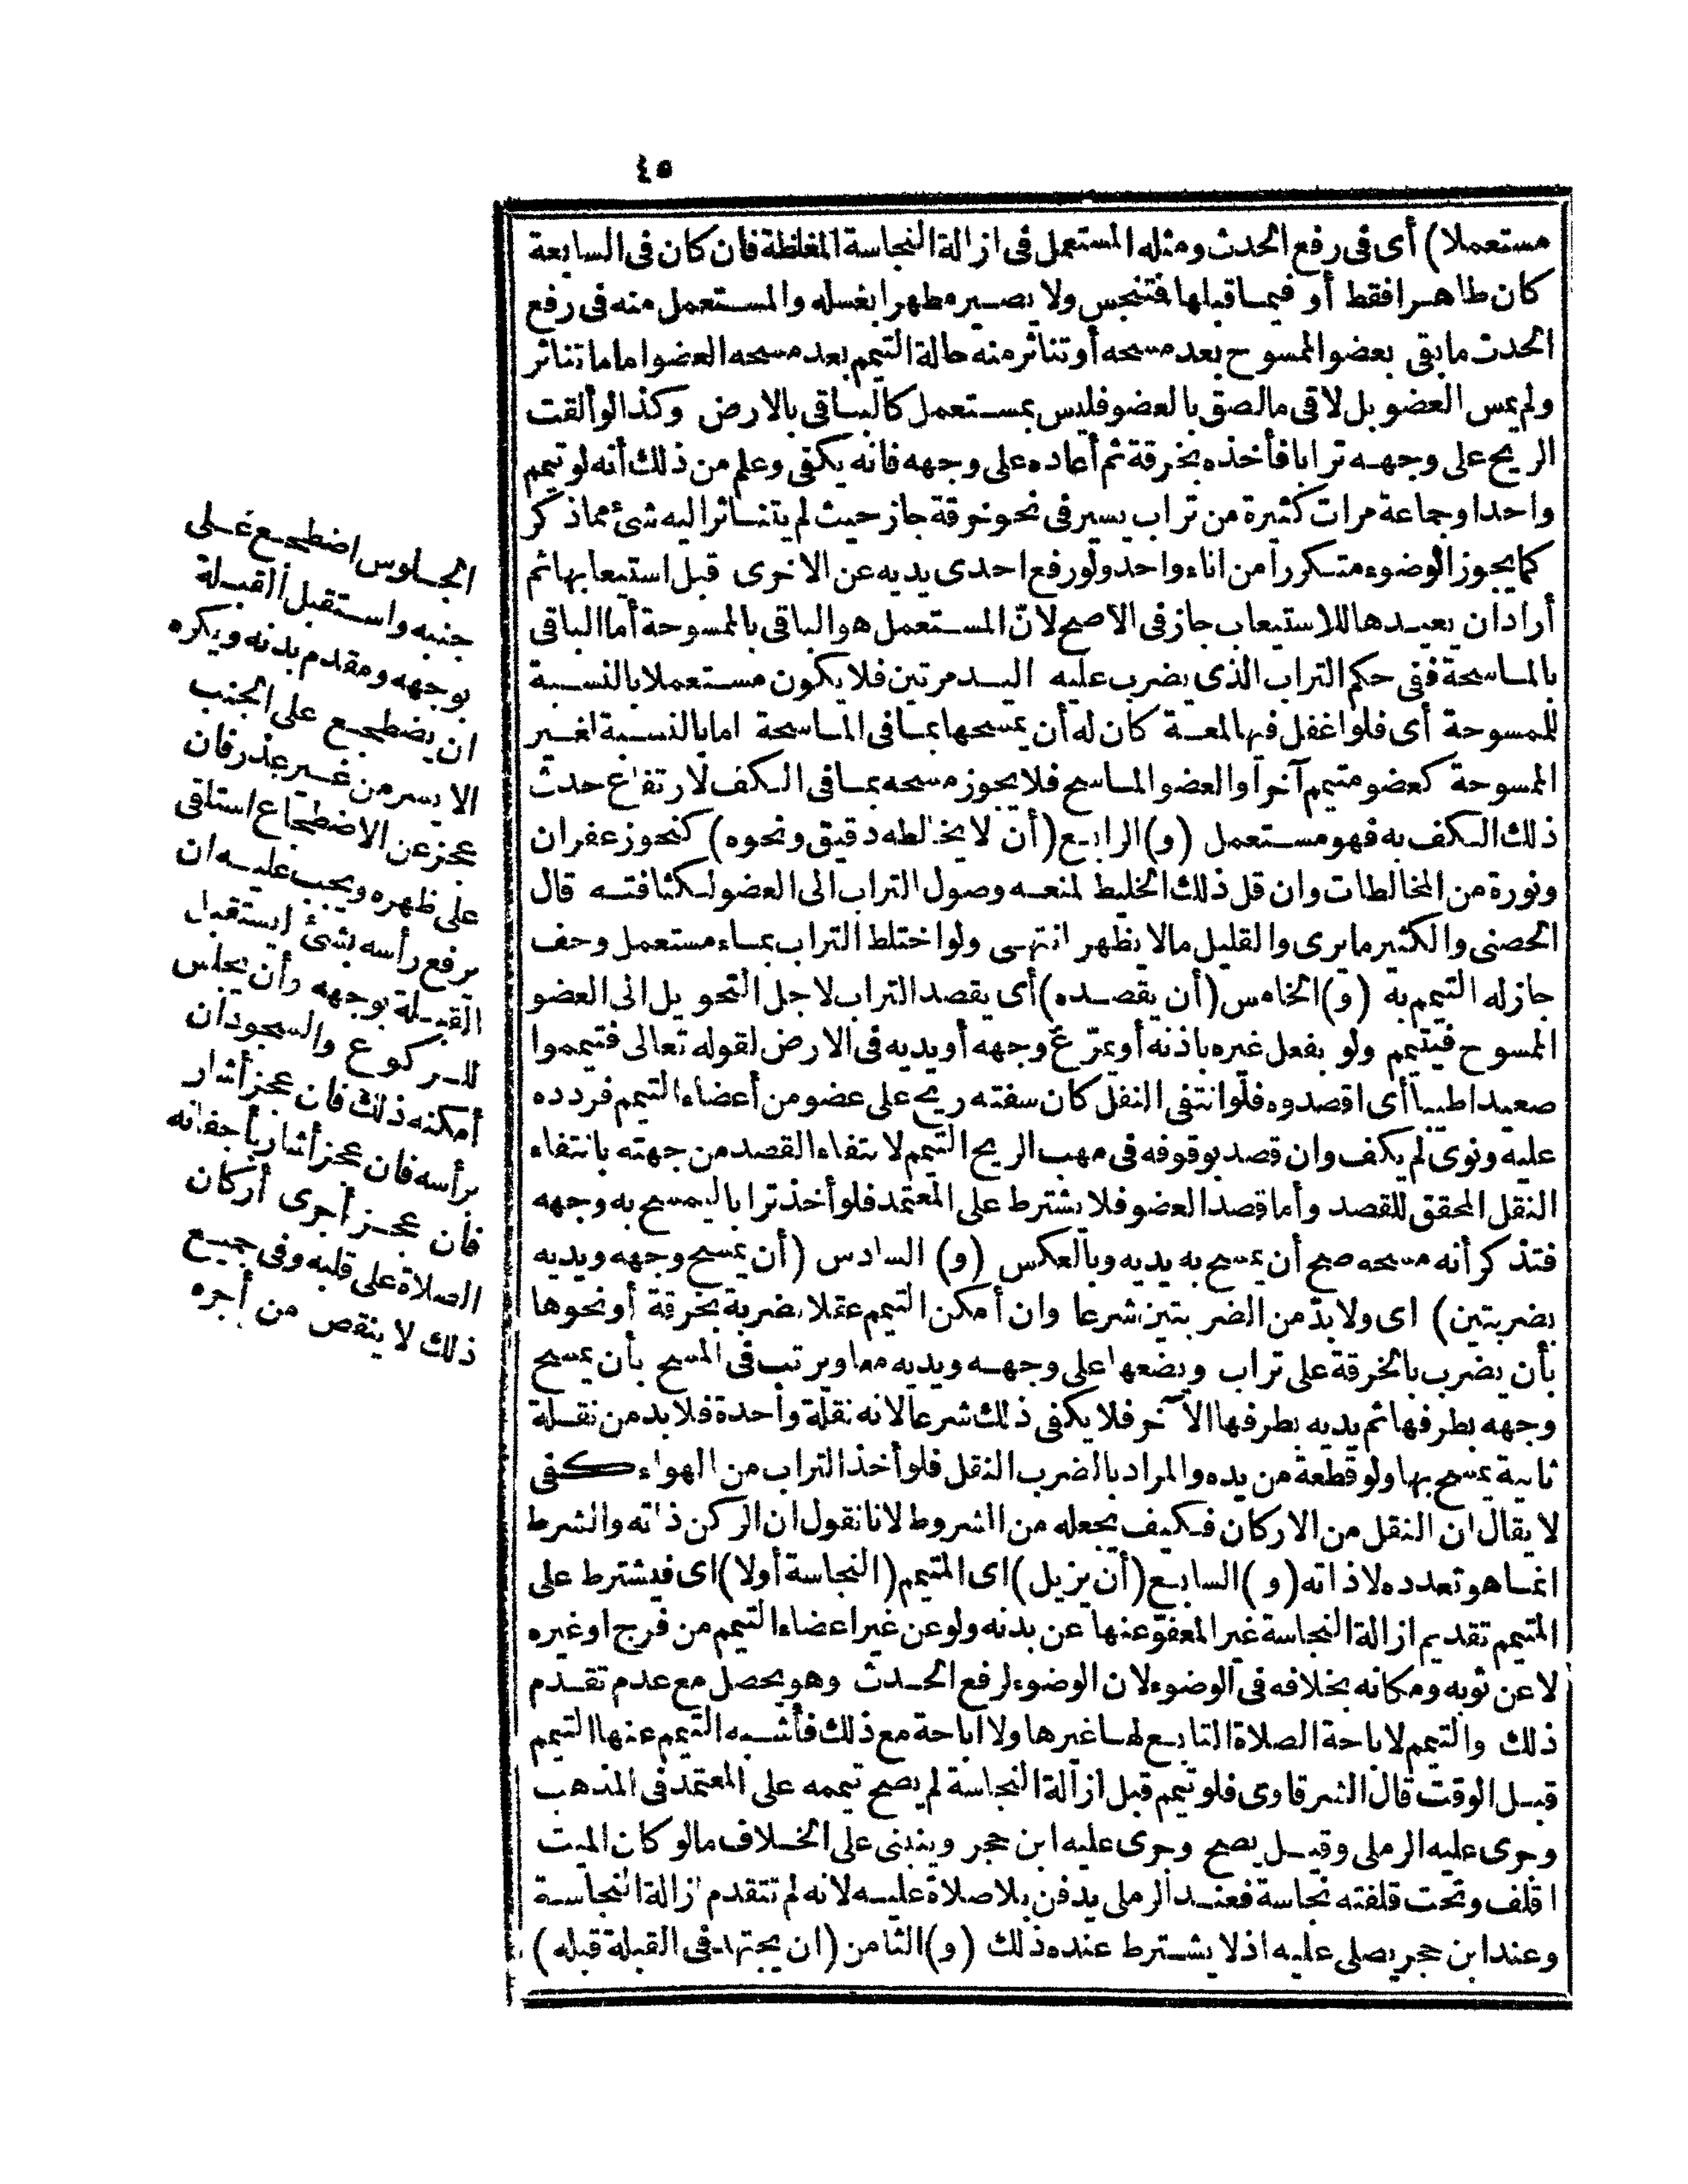 ٤٥
مستعملا) أى فى رفع الحدث ومثله المستعمل فى ازالة النجاسة المغلظة فان كان فى السابعة
كان طاهرا فقط أو فيما قبلها فتنجس ولا يصير مطهرا بغسله والمستعمل منه فى رفع
الحدث ما بقى بعضو الممسوح بعد مسحه أو تناثر منه حالة التيمم بعد مسحه العضو اما ما تناثر
ولم يمس العضو بل لاقى ما لصق بالعضو فليس بمستعمل كالباقى بالارض وكذا لو ألقت
الريح على وجهه ترابا فأخذه بخرقة ثم أعاده على وجهه فانه يكفى وعلم من ذلك أنه لو تيمم
واحد أو جماعة مرات كثيرة من تراب يسير فى نحو خرقة جاز حيث لم يتناثر اليه شئ مما ذكر
كما يجوز الوضوء متكررا من اناء واحد ولو رفع احدى يديه عن الاخرى قبل استيعابها ثم
أراد ان يعيدها للاستيعاب جاز فى الاصح لانّ المستعمل هو الباقى بالممسوحة أما الباقى
بالماسحة ففى حكم التراب الذى يضرب عليه اليد مرتين فلا يكون مستعملا بالنسبة
للممسوحة أى فلو اغفل فيها لمعة كان له أن يمسحها بما فى الماسحة اما بالنسبة لغير
الممسوحة كعضو متيمم آخر أو العضو الماسح فلا يجوز مسحه بما فى الكف لارتفاع حدث
ذلك الكف به فهو مستعمل (و) الرابع (أن لا يخالطه دقيق ونحوه) كنحو زعفران
ونورة من المخالطات وان قل ذلك الخليط لمنعه وصول التراب الى العضو لكثافته قال
الحصنى والكثير ما يرى والقليل ما لا يظهر انتهى ولو اختلط التراب بماء مستعمل وجف
جاز له التيمم به (و) الخامس (أن يقصده) أى يقصد التراب لاجل التحويل الى العضو
الممسوح فيتيمم ولو بفعل غيره باذنه أو يمرّغ وجهه أو يديه فى الارض لقوله تعالى فتيمموا
صعيدا طيبا أى اقصدوه فلو انتفى النقل كان سفته ريح على عضو من أعضاء التيمم فردده
عليه ونوى لم يكف وان قصد بوقوفه فى مهب الريح التيمم لانتفاء القصد من جهته بانتفاء
النقل المحقق للقصد وأما قصد العضو فلا يشترط على المعتمد فلو أخذ ترابا ليمسح به وجهه
فتذكر أنه مسحه صح أن يمسح به يديه وبالعكس (و) السادس (أن يمسح وجهه ويديه
بضربتين) اى ولا بدّ من الضربتين شرعا وان أمكن التيمم عقلا بضربة بخرقة أو نحوها
بأن يضرب بالخرقة على تراب ويضعها على وجهه ويديه معا ويرتب فى المسح بأن يمسح
وجهه بطرفها ثم يديه بطرفها الآخر فلا يكفى ذلك شرعا لانه نقلة واحدة فلا بد من نقلة
ثانية يمسح بها ولو قطعة من يده والمراد بالضرب النقل فلو أخذ التراب من الهواء كفى
لا يقال ان النقل من الاركان فكيف يجعله من الشروط لانا نقول ان الركن ذاته والشرط
انما هو تعدده لا ذاته (و) السابع (أن يزيل) اى المتيمم (النجاسة أولا) اى فيشترط على
المتيمم تقديم ازالة النجاسة غير المعفوّ عنها عن بدنه ولو عن غير اعضاء التيمم من فرج او غيره
لا عن ثوبه ومكانه بخلافه فى الوضوء لان الوضوء لرفع الحدث وهو يحصل مع عدم تقدم
ذلك والتيمم لاباحة الصلاة التابع لها غيرها ولا اباحة مع ذلك فأشبه التيمم عنها التيمم
قبل الوقت قال الشرقاوى فلو تيمم قبل ازالة النجاسة لم يصح تيممه على المعتمد فى المذهب
وجرى عليه الرملى وقيل يصح وجرى عليه ابن حجر وينبنى على الخلاف ما لو كان الميت
اقلف وتحت قلفته نجاسة فعند الرملى يدفن بلا صلاة عليه لانه لم تتقدم ازالة النجاسة
وعند ابن حجر يصلى عليه اذ لا يشترط عنده ذلك (و) الثامن (ان يجتهد فى القبلة قبله)
الجلوس اضطجع على
جنبه واستقبل القبلة
بوجهه ومقدم بدنه ويكره
ان يضطجع على الجنب
الايسر من غير عذر فان
عجز عن الاضطجاع استلقى
على ظهره ويجب عليه ان
يرفع رأسه بشئ ليستقبل
القبلة بوجهه وأن يجلس
للركوع والسجود ان
أمكنه ذلك فان عجز أشار
برأسه فان عجز أشار بأجفانه
فان عجز أجرى أركان
الصلاة على قلبه وفى جميع
ذلك لا ينقص من أجره